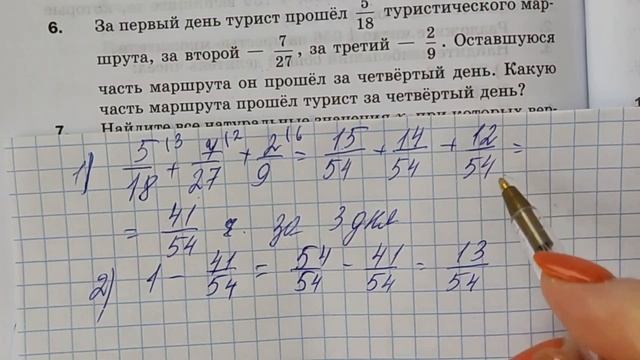 6. За первый день турист прошёл 5/18 туристического мар-
шрута, за второй — 7/27, за третий — 2/9. Оставшуюся
часть маршрута он прошёл за четвёртый день. Какую
часть маршрута прошёл турист за четвёртый день?
7. Найдите все натуральные значения x, при которых вер-
1) 5/18 (3 + 7/27 (2 + 2/9 (6 = 15/54 + 14/54 + 12/54 =
= 41/54 ч. за 3 дня
2) 1 - 41/54 = 54/54 - 41/54 = 13/54